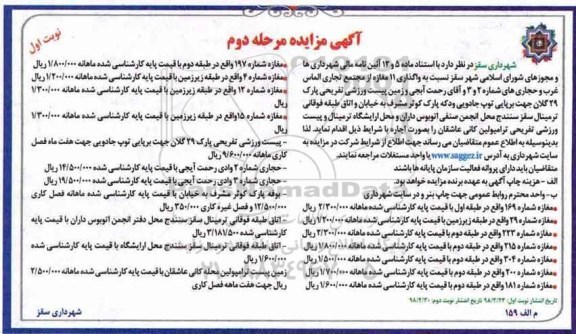 آگهی مزایده مرحله دوم
نوبت اول
شهرداری سقز در نظر دارد با استناد ماده ۵ و ۱۳ آئین نامه مالی شهرداری ها
و مجوزهای شورای اسلامی شهر سقز نسبت به واگذاری ۱۱ مغازه از مجتمع تجاری الماس
غرب و حجاری های شماره ۲ و ۳ و آقای رحمت آبجی و زمین پیست ورزشی تفریحی پارک
۲۹ گلان جهت برپایی توپ جادویی و دکه پارک کوثر مشرف به خیابان و اتاق طبقه فوقانی
ترمینال سقز سنندج محل انجمن صنفی اتوبوس داران و محل ارایشگاه ترمینال و پیست
ورزشی تفریحی ترامپولین کانی عاشقان را بصورت اجاره با شرایط ذیل اقدام نماید. لذا
بدینوسیله به اطلاع عموم متقاضیان می رساند جهت اطلاع از شرایط شرکت در مزایده به
سایت شهرداری به آدرس www.saggez.ir یا واحد مستغلات مراجعه نمایند.
متقاضیان باید دارای پروانه فعالیت سازمان پایانه ها باشند
الف - هزینه چاپ آگهی به عهده برنده مزایده خواهد بود.
ب- واحد محترم روابط عمومی جهت چاپ بنر و در سایت شهرداری
●مغازه شماره ۱۶۹ واقع در طبقه اول با قیمت پایه کارشناسی شده ماهانه ۲/۳۰۰/۰۰۰ ریال
●مغازه شماره ۲۹ واقع در طبقه زیرزمین با قیمت پایه کارشناسی شده ماهانه ۱/۲۰۰/۰۰۰ ریال
●مغازه شماره ۲۲۳ واقع در طبقه دوم با قیمت پایه کارشناسی شده ماهانه ۲/۳۰۰/۰۰۰ ریال
●مغازه شماره ۲۱۵ واقع در طبقه دوم با قیمت پایه کارشناسی شده ماهانه ۱/۸۰۰/۰۰۰ ریال
●مغازه شماره ۲۰۴ واقع در طبقه دوم با قیمت پایه کارشناسی شده ماهانه ۱/۶۰۰/۰۰۰ ریال
●مغازه شماره ۲۰۰ واقع در طبقه دوم با قیمت پایه کارشناسی شده ماهانه ۱/۷۰۰/۰۰۰ ریال
●مغازه شماره ۱۸۱ واقع در طبقه دوم با قیمت پایه کارشناسی شده ماهانه ۱/۶۰۰/۰۰۰ ریال
تاریخ انتشار نوبت اول: ۹۸/۲/۲۳ تاریخ انتشار نوبت دوم: ۹۸/۲/۳۰
م الف ۱۵۹
●مغازه شماره ۱۹۷ واقع در طبقه دوم با قیمت پایه کارشناسی شده ماهانه ۱/۸۰۰/۰۰۰ ریال
●مغازه شماره ۴ واقع در طبقه زیرزمین با قیمت پایه کارشناسی شده ماهانه ۱/۲۰۰/۰۰۰ ریال
●مغازه شماره ۱۲ واقع در طبقه زیرزمین با قیمت پایه کارشناسی شده ماهانه ۱/۳۰۰/۰۰۰
ریال
●مغازه شماره ۱۵ واقع در طبقه زیرزمین با قیمت پایه کارشناسی شده ماهانه ۱/۳۰۰/۰۰۰
ریال
- پیست ورزشی تفریحی پارک ۲۹ گلان جهت برپایی توپ جادویی جهت هفت ماه فصل
کاری ماهانه ۹/۶۰۰/۰۰۰ ریال
- حجاری شماره ۲ وادی رحمت آبجی با قیمت پایه کارشناسی شده ۱۴/۵۰۰/۰۰۰ ریال
- حجاری شماره ۳ وادی رحمت آبجی با قیمت پایه کارشناسی شده ۱۹/۵۰۰/۰۰۰ ریال
- بوفه پارک کوثر مشرف به خیابان با قیمت پایه کارشناسی شده ماهانه فصل کاری
۱۲/۵۰۰/۰۰۰ و فصل غیره کاری ۲/۵۰۰/۰۰۰ ریال
- اتاق طبقه فوقانی ترمینال سقز سنندج محل دفتر انجمن اتوبوس داران با قیمت پایه
کارشناسی شده ۳/۱۸۱/۵۰۰ ریال
- اتاق طبقه فوقانی ترمینال سقز سنندج محل ارایشگاه با قیمت پایه کارشناسی شده
۱/۶۰۰/۰۰۰ ریال
زمین پیست ترامپولین محله کانی عاشقان با قیمت پایه کارشناسی شده ماهانه ۲/۵۰۰/۰۰۰
ریال جهت هفت ماهه فصل کاری
شهرداری سقز